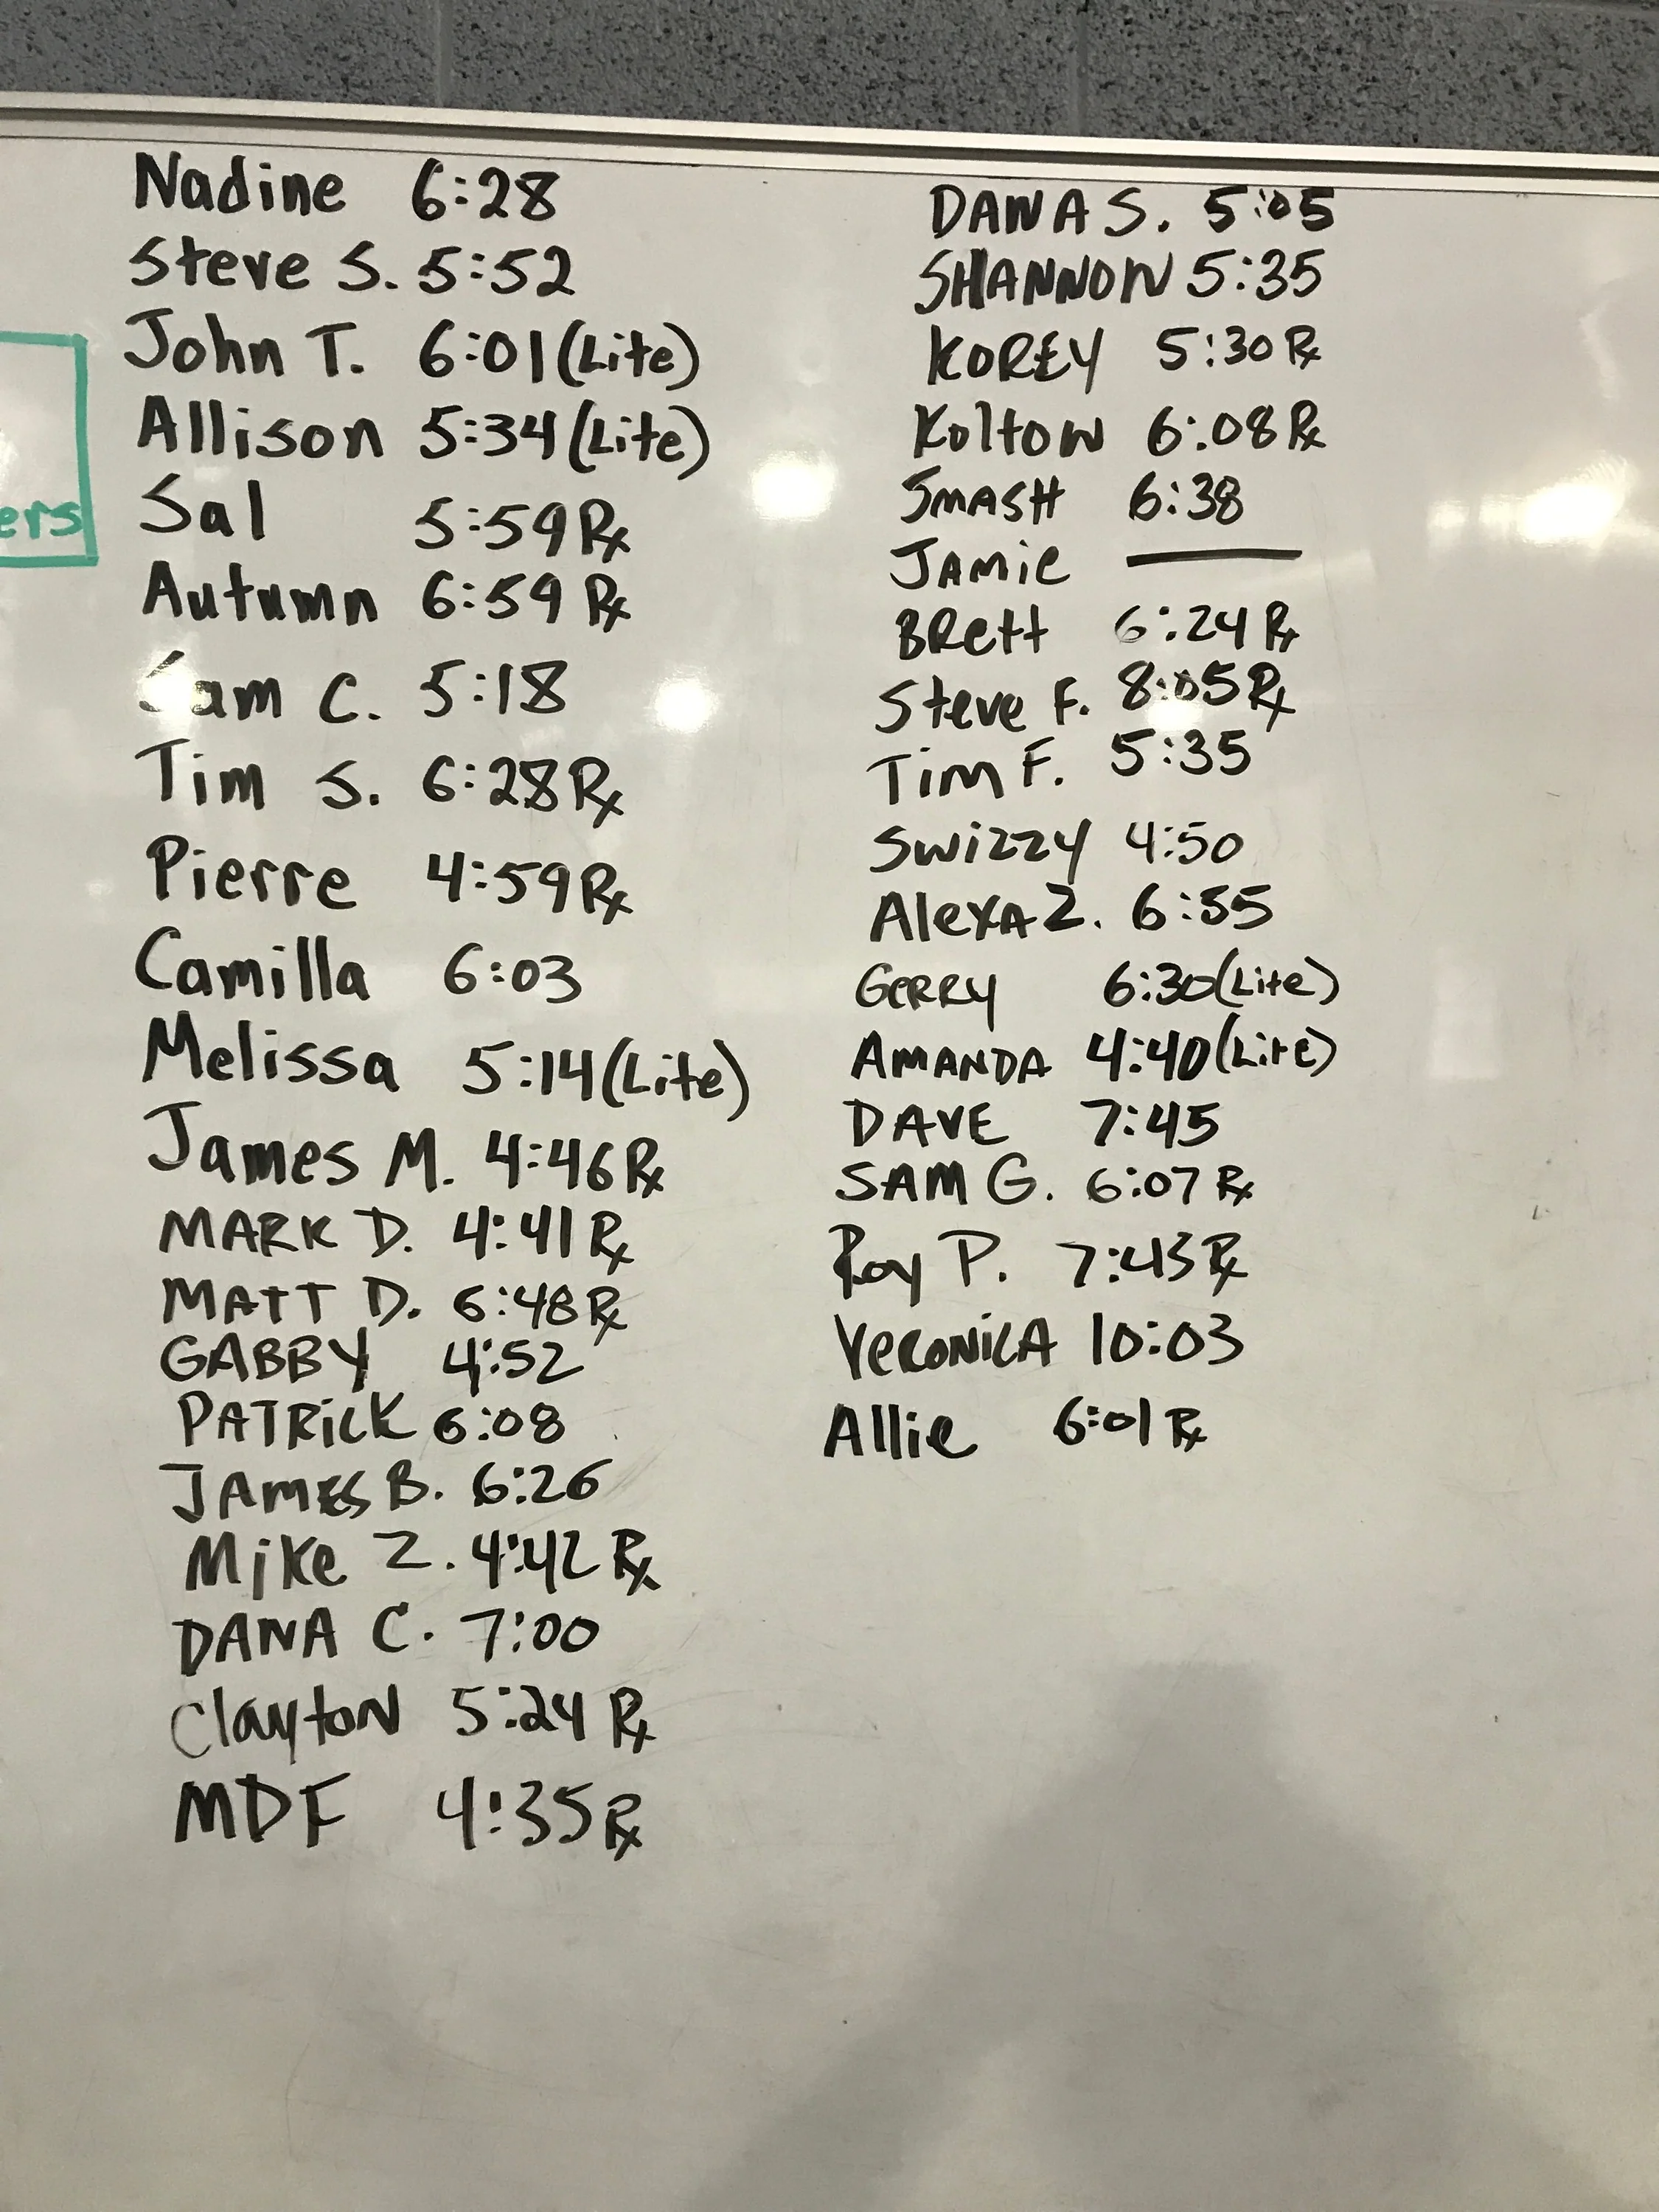 Nadine 6:28
Steve S. 5:52
John T. 6:01 (Lite)
Allison 5:34 (Lite)
Sal 5:59 Rx
Autumn 6:59 Rx
Sam C. 5:18
Tim S. 6:28 Rx
Pierre 4:59 Rx
Camilla 6:03
Melissa 5:14 (Lite)
James M. 4:46 Rx
MARK D. 4:41 Rx
MATT D. 6:48 Rx
GABBY 4:52
PATRiCK 6:08
JAMES B. 6:26
Mike Z. 4:42 Rx
DANA C. 7:00
ClaytoN 5:24 Rx
MDF 4:35 Rx
ers
DANA S. 5:05
SHANNON 5:35
KOREY 5:30 Rx
KoltoN 6:08 Rx
SMASH 6:38
JAMie
BRett 6:24 Rx
Steve F. 8:05 Rx
TiM F. 5:35
SWiZZY 4:50
AlexA Z. 6:55
GeRRY 6:30 (Lite)
AMANDA 4:40 (Lite)
DAVE 7:45
SAM G. 6:07 Rx
Roy P. 7:43 Rx
VeRONiCA 10:03
Allie 6:01 Rx